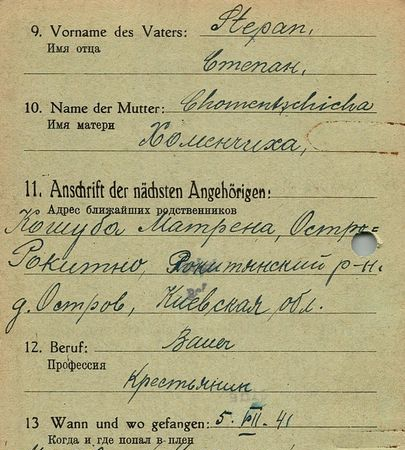 9. Vorname des Vaters: Stepan,
Имя отца
Степан,
10. Name der Mutter: Chomentschicha
Имя матери
Хоменчиха,
11. Anschrift der nächsten Angehörigen:
Адрес ближайших родственников
Кошуба Матрена, Остро-
Рокитно, Рокитянский р-н.
д. Остров, Киевская обл.
12. Beruf: Bauer
Профессия
Крестьянин
13 Wann und wo gefangen: 5. VII. 41
Когда и где попал в плен